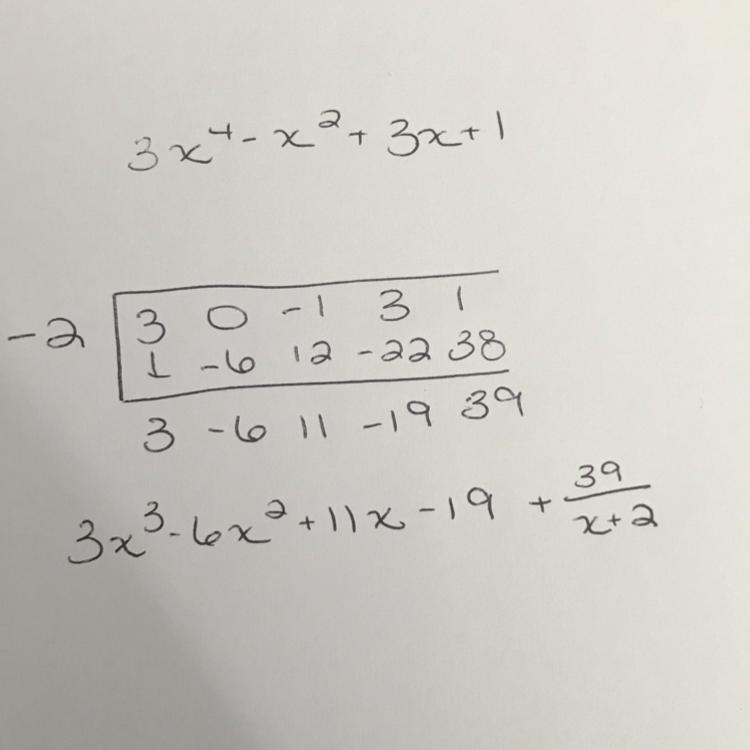 3x⁴ - x² + 3x + 1
-2 3 0 -1 3 1
↓ -6 12 -22 38
3 -6 11 -19 39
3x³ - 6x² + 11x - 19 + 39/(x+2)